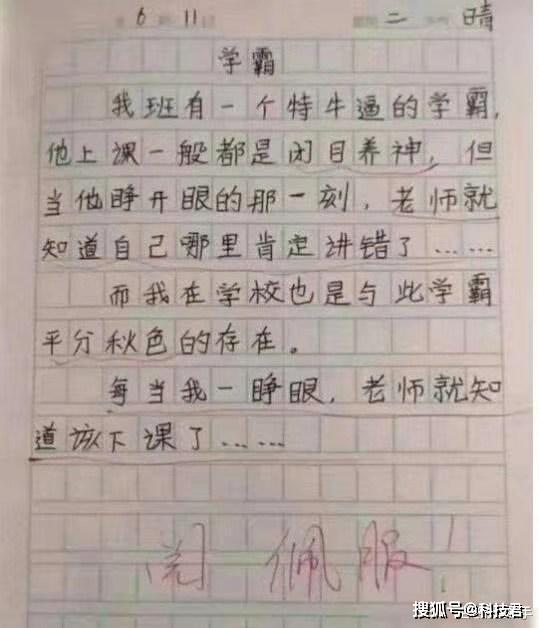 6 11 二 晴
学霸
我班有一个特牛逼的学霸,
他上课一般都是闭目养神,但
当他睁开眼的那一刻,老师就
知道自己哪里肯定讲错了……
而我在学校也是与此学霸
平分秋色的存在。
每当我一睁眼,老师就知
道该下课了……
阅 佩服!
搜狐号@科技君